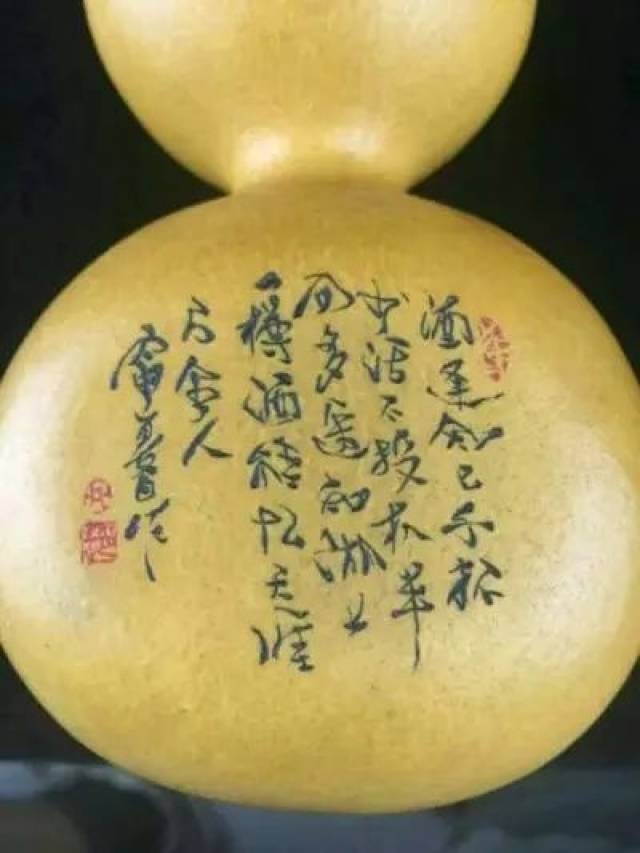 酒逢知己千杯
少话不投机半
句多遥知湖上
一樽酒能忆天涯
万里人